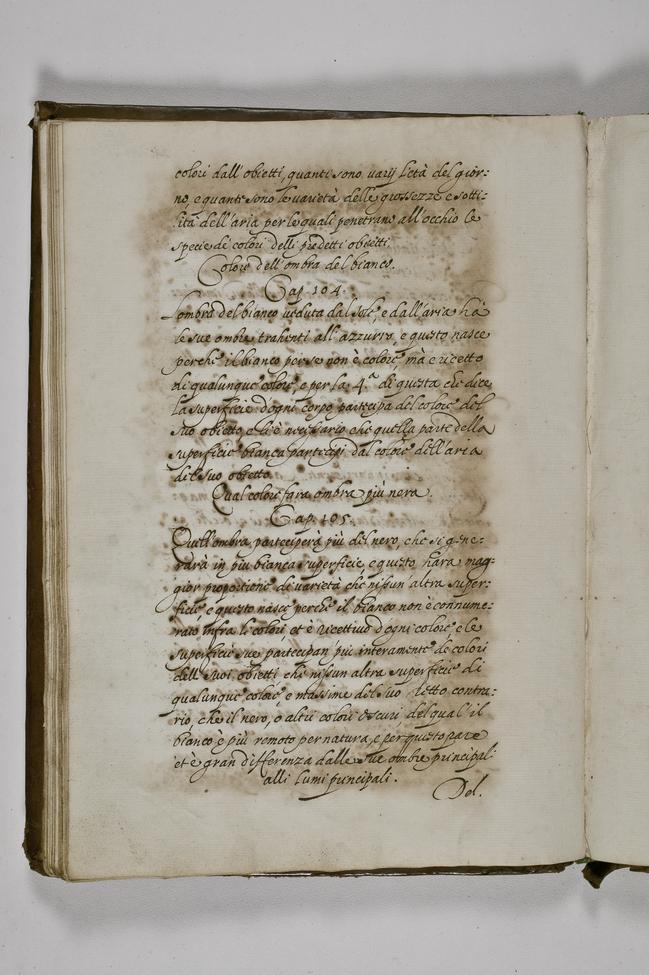 colori dall'obietti, quanti sono varij l'età del gior:
no, e quante sono le varietà delle grossezze e sotti:
lità dell'aria per le quali penetrano all'occhio le
specie di colori delli predetti obietti.
Colore dell'ombra del bianco.
Cap. 104.
L'ombra del bianco veduta dal sole, e dall'aria hà
le sue ombre trahenti all'azzurro, e questo nasce
perche il bianco per se non è colore, mà e ricetto
di qualunque colore, e per la 4.ª di questa che dice
la superficie d'ogni corpo partecipa del colore del
suo obietto e li è necessario che quella parte della
superficie bianca partecipi dal colore dell'aria
del suo obietto.
Qual colore fara ombra più nera.
Cap. 105.
Quell'ombra parteciperà più del nero, che si gene:
rarà in piu bianca superficie, e questo harà mag:
gior proportione di varietà che nissun altra super:
ficie, e questo nasce perche il bianco non è connume:
rato infra li colori et è ricettivo d'ogni colore, e le
superficie sue partecipan' piu interamente de colori
delli suoi obietti che nissun altra superficie di
qualunque colore, e massime del suo retto contra:
rio, che il nero, ò altri colori oscuri, del qual' il
bianco è più remoto per natura, e per questo pare
et è gran differenza dalle sue ombre principali
alli lumi principali.
Del.